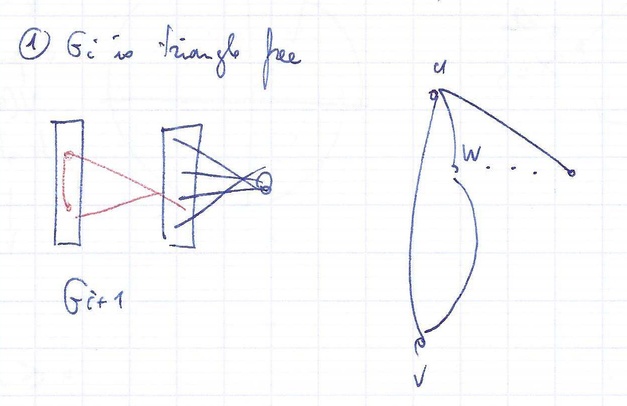 ① Gi is triangle free
u
W
Gi+1
V